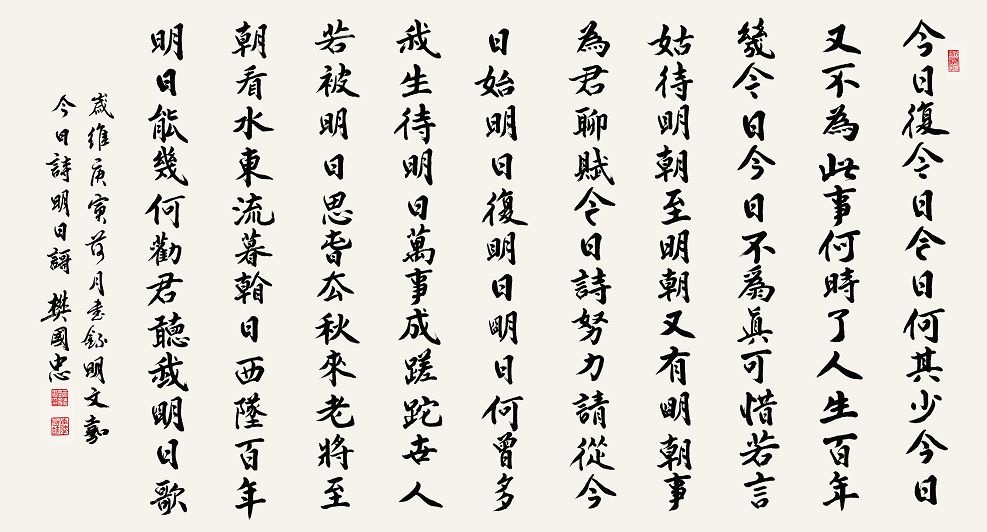 今日復今日今日何其少今日
又不為此事何時了人生百年
幾今日今日不爲眞可惜若言
姑待明朝至明朝又有明朝事
為君聊賦今日詩努力請從今
日始明日復明日明日何曾多
我生待明日萬事成蹉跎世人
若被明日思旾厺秋來老將至
朝看水東流暮看日西墜百年
明日能幾何勸君聽我明日歌
歲維庚寅荷月書錄明文嘉
今日詩明日謌 樊國忠